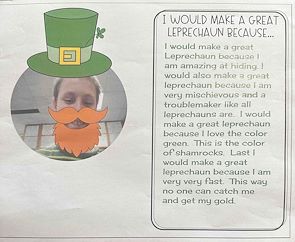 I WOULD MAKE A GREAT
LEPRECHAUN BECAUSE...
I would make a great
Leprechaun because I
am amazing at hiding. I
would also make a great
leprechaun because I am
very mischievous and a
troublemaker like all
leprechauns are. I would
make a great leprechaun
because I love the color
green. This is the color
of shamrocks. Last I
would make a great
leprechaun because I am
very very fast. This way
no one can catch me
and get my gold.